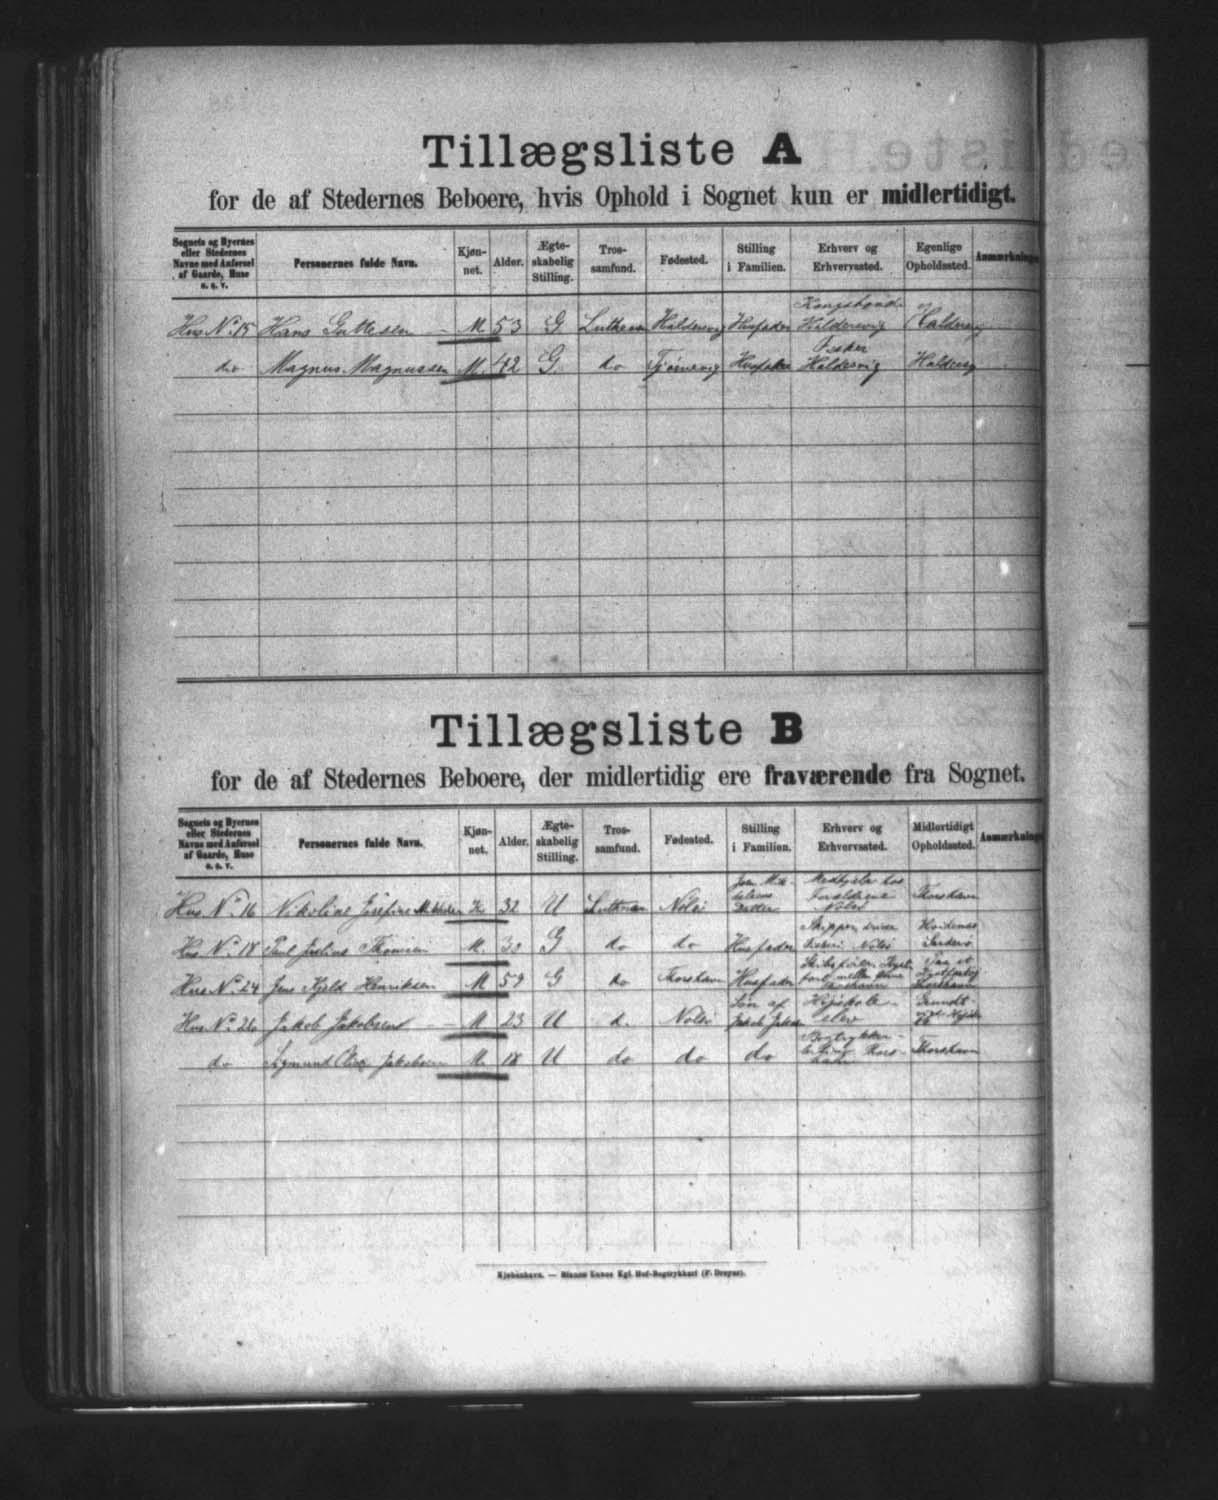 Tillægsliste A
for de af Stedernes Beboere, hvis Ophold i Sognet kun er midlertidigt.
Sognets og Byernes eller Stedernes Navne med Anførsel af Gaarde, Huse o. s. v. Personernes fulde Navn. Kjøn-net. Alder. Ægte-skabelig Stilling. Tros-samfund. Fødested. Stilling i Familien. Erhverv og Erhvervssted. Egenlige Opholdssted. Anmærkninge
Hus No 15 Hans Guttesen M 53 G Luthersk Haldersvig Husfader Kongsbonde Haldersvig Haldersvig
do Magnus Magnussen M. 42 G do Tjørnevig Husfader Fisker Haldersvig Haldersvig
Tillægsliste B
for de af Stedernes Beboere, der midlertidig ere fraværende fra Sognet.
Sognets og Byernes eller Stedernes Navne med Anførsel af Gaarde, Huse o. s. v. Personernes fulde Navn. Kjøn-net. Alder. Ægte-skabelig Stilling. Tros-samfund. Fødested. Stilling i Familien. Erhverv og Erhvervssted. Midlertidigt Opholdssted. Anmærkninge
Hus No 16 Nikoline Josefine K 32 U Luthersk Nolsö Datter Forældrene Nolsö Thorshavn
Hus No 18 Poul Thomsen M. G do do Husfader Skipper Nolsö
Hus No 24 Jens Kjeld Henriksen M 59 G do Thorshavn Husfader Thorshavn
Hus No 26 Jakob Jakobsen M 23 U d. Nolsö Søn af Jakob Højskole-elev
do Jakobsen M. 18 U do do do Thorshavn
Kjøbenhavn. — Bianco Lunos Kgl. Hof-Bogtrykkeri (F. Dreyer).